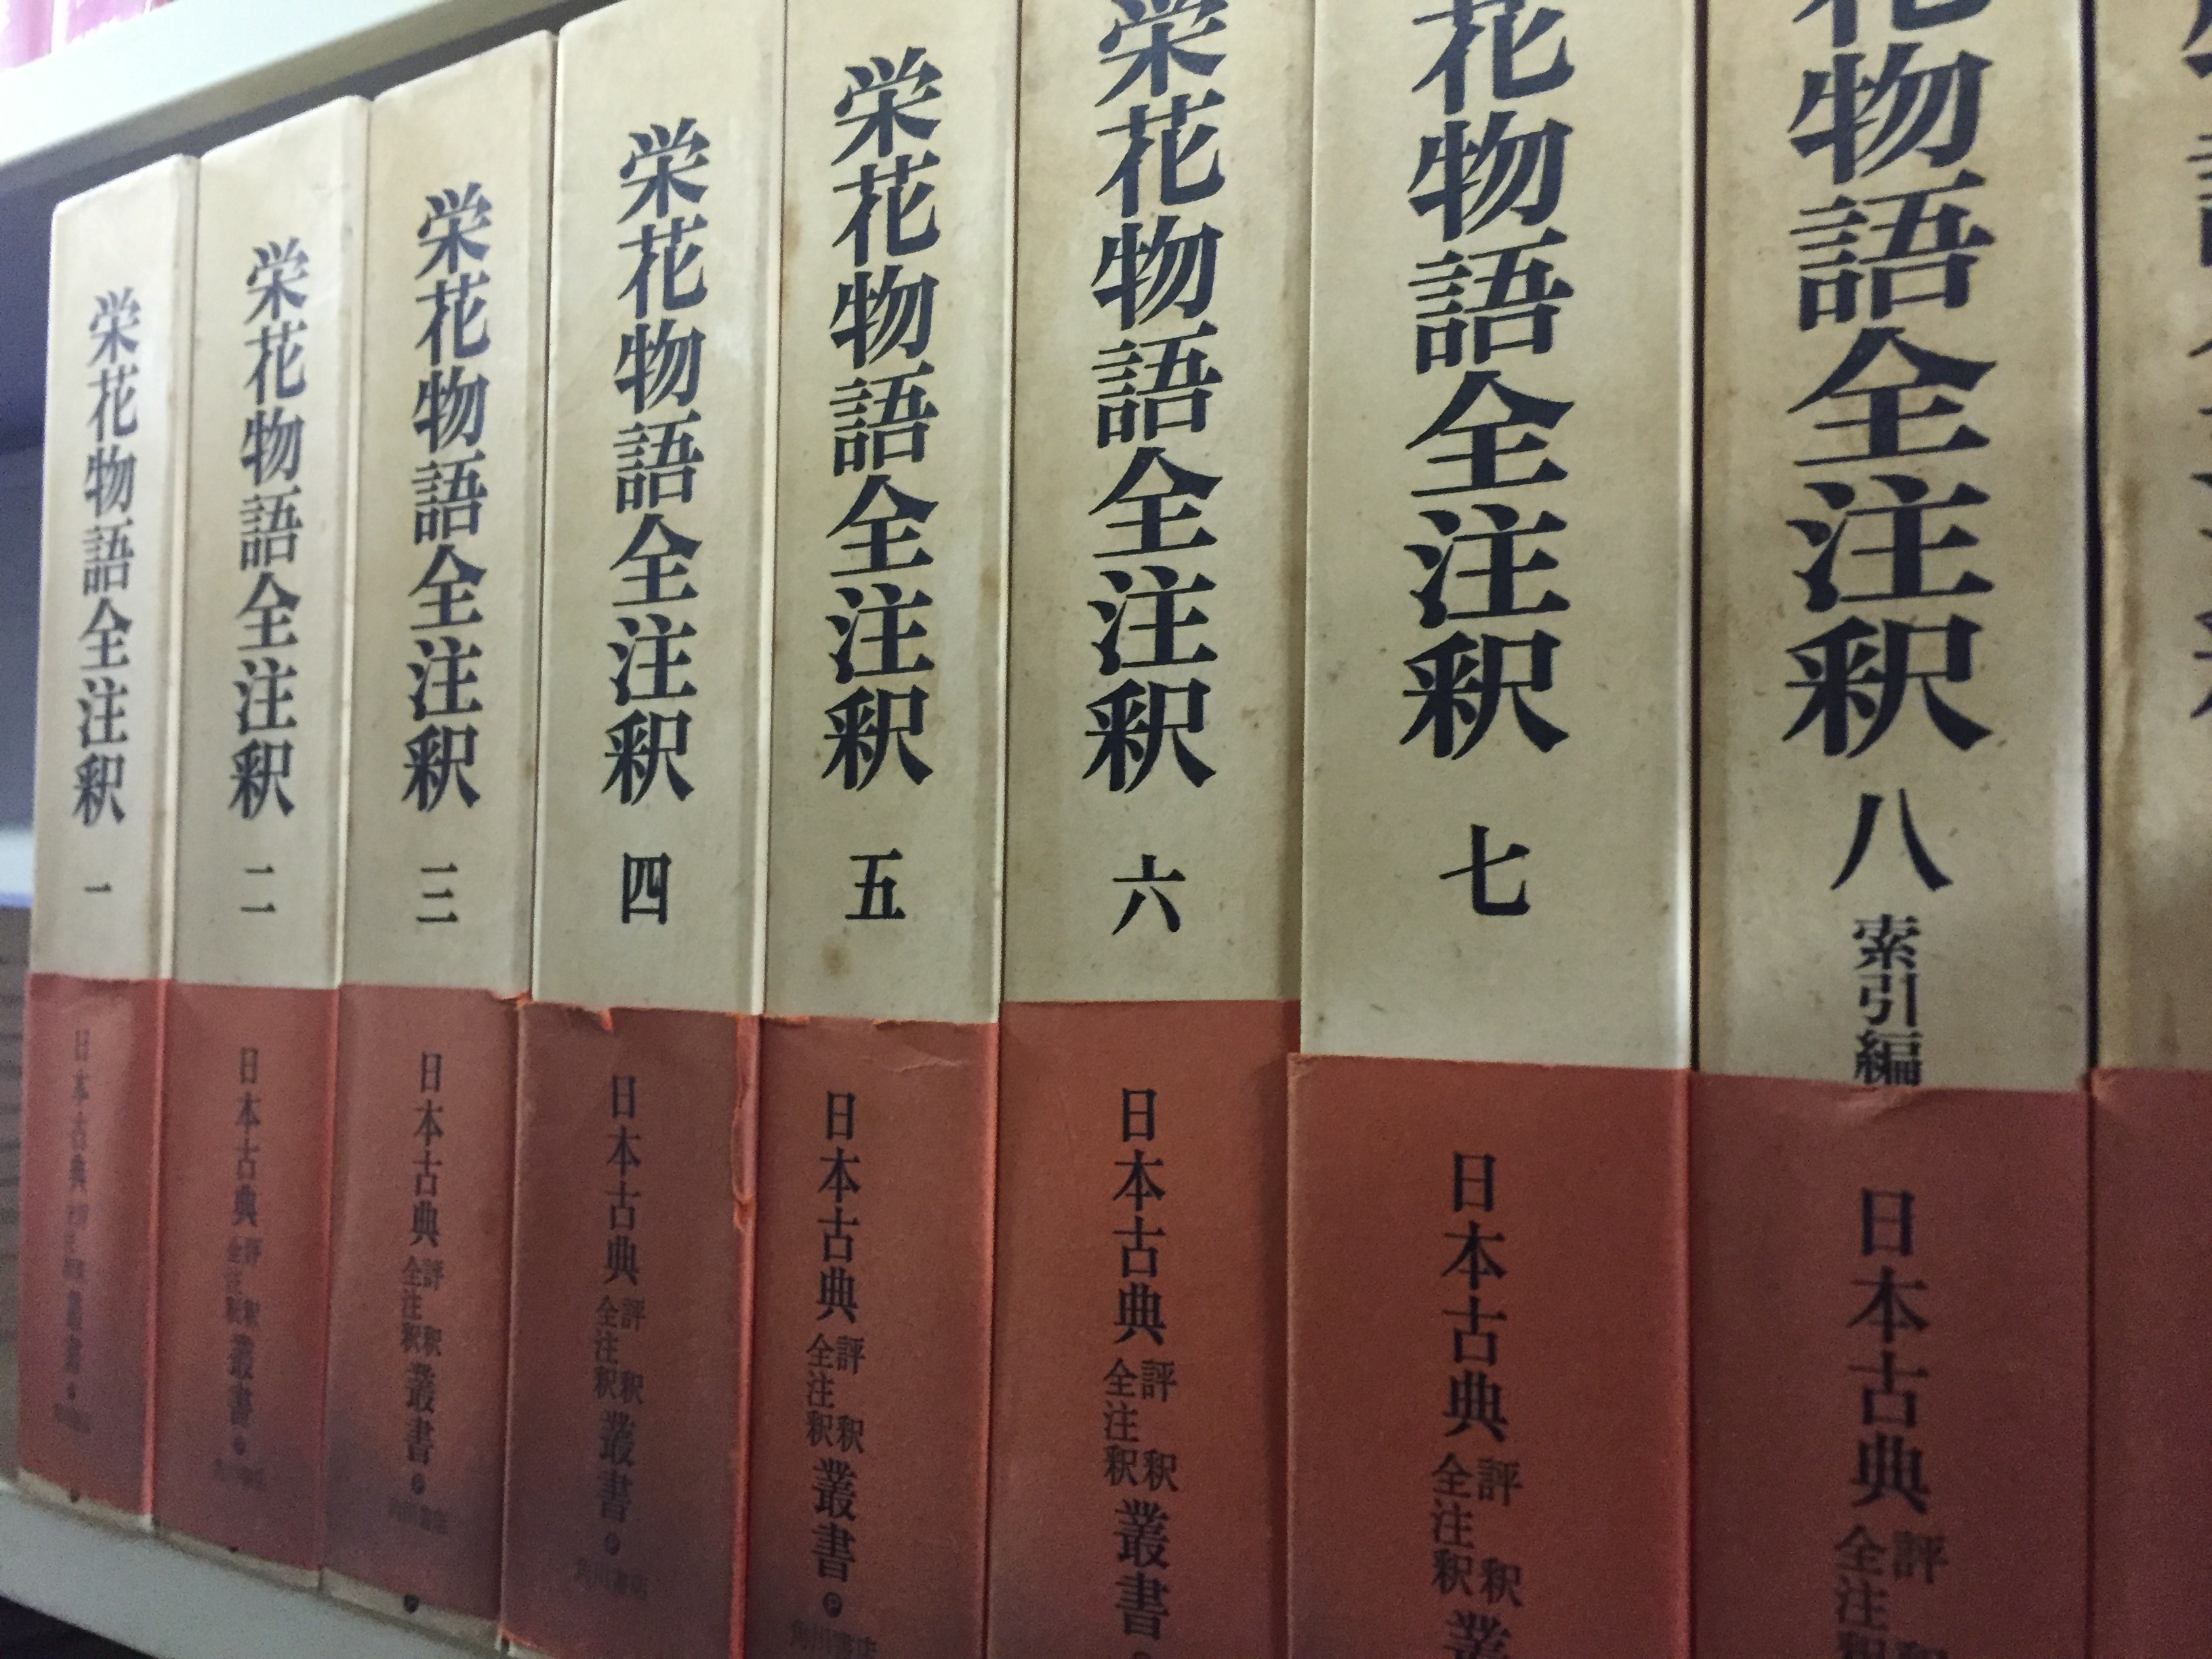 栄花物語全注釈 一
日本古典
叢書
栄花物語全注釈 二
日本古典
評釈
全注釈
叢書
栄花物語全注釈 三
日本古典
評釈
全注釈
叢書
角川書店
栄花物語全注釈 四
日本古典
評釈
全注釈
叢書
角川書店
栄花物語全注釈 五
日本古典
評釈
全注釈
叢書
角川書店
栄花物語全注釈 六
日本古典
評釈
全注釈
叢書
花物語全注釈 七
日本古典
評釈
全注釈
叢
花物語全注釈 八
索引編
日本古典
評
全注